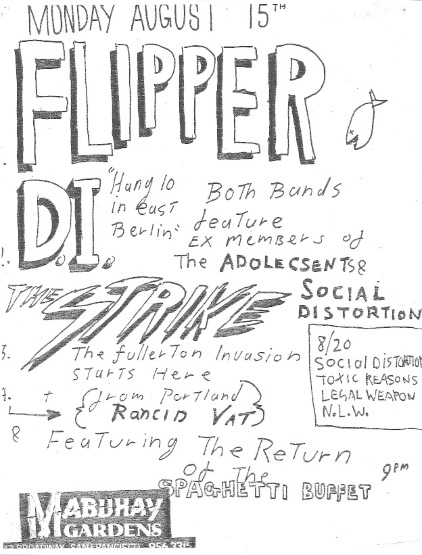 MONDAY AUGUST 15TH
FLIPPER
D.I. "Hang 10 in east Berlin"
Both Bands feature
ex members of
The ADOLECSENTS &
SOCIAL DISTORTION
THE STRIKE
The fullerton Invasion
starts Here
+ from Portland
RANCID VAT
8/20
SOCIAL DISTORTION
TOXIC REASONS
LEGAL WEAPON
N.L.W.
& Featuring The Return
of The
SPAGHETTI BUFFET
9PM
MABUHAY
GARDENS
BROADWAY SAN FRANCISCO 956 3315